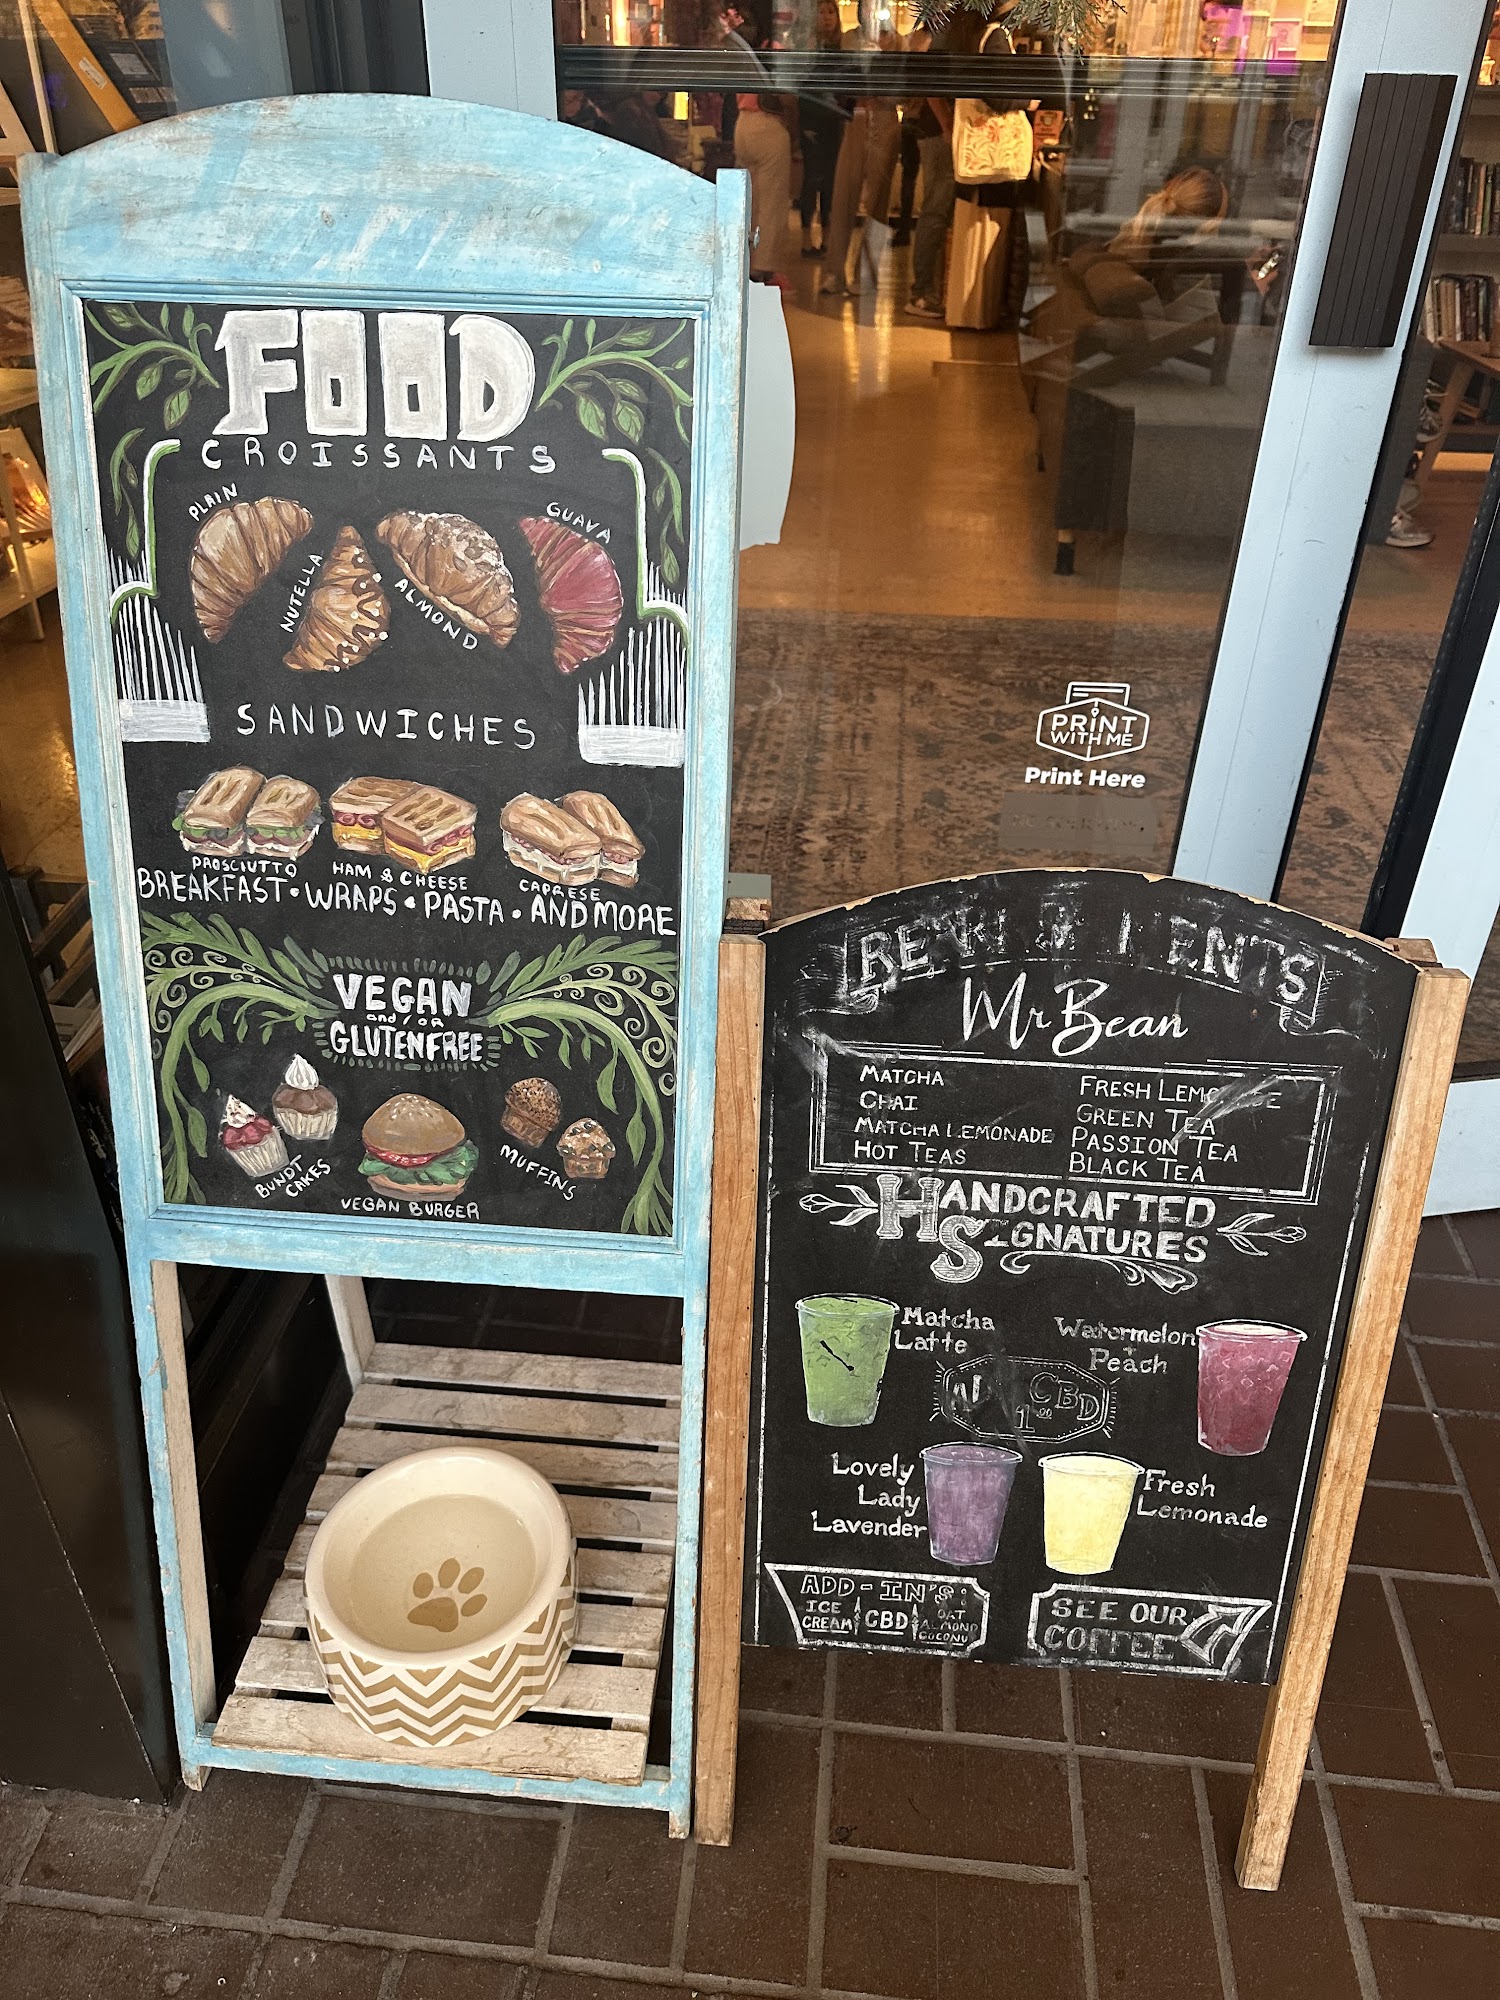 FOOD
CROISSANTS
PLAIN
NUTELLA
ALMOND
GUAVA
SANDWICHES
PROSCIUTTO
HAM & CHEESE
CAPRESE
BREAKFAST • WRAPS • PASTA • AND MORE
VEGAN
and/or
GLUTENFREE
BUNDT
CAKES
VEGAN BURGER
MUFFINS
PRINT
WITH ME
Print Here
Mr Bean
MATCHA
CHAI
MATCHA LEMONADE
HOT TEAS
GREEN TEA
PASSION TEA
BLACK TEA
FRESH
HANDCRAFTED
SIGNATURES
Matcha
Latte
Watermelon
+
Peach
CBD
1.00
Lovely
Lady
Lavender
Fresh
Lemonade
ADD-IN'S:
ICE
CREAM
CBD
OAT
ALMOND
COCONUT
SEE OUR
COFFEE